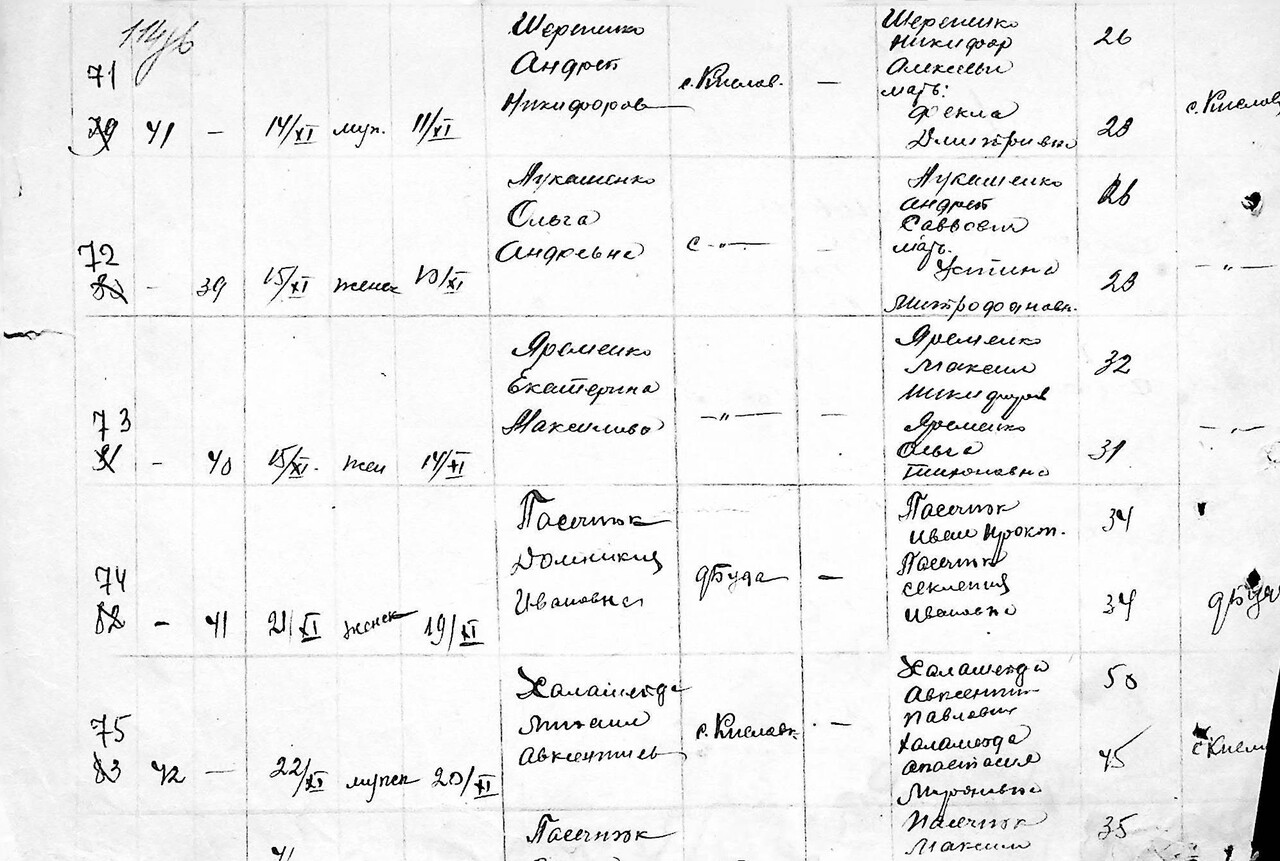 71
79 41 — 14/XI муж. 11/XI
Шеремико
Андрей
Никифоров
с. Кислав. —
Шеремико
Никифор
Алексеев
мать:
Фекла
Дмитривна
26
28
с. Кислов
72
80 — 39 15/XI женск 10/XI
Лукашенко
Ольга
Андреевна
с —"— —
Лукашенко
Андрей
Саввович
мать.
Устина
Митрофановн.
26
23
—"—
73
81 — 40 15/XI. жен 14/XI
Яременко
Екатерина
Максимова
—"— —
Яременко
Максим
Никифоров
Яременко
Ольга
Тихоновна
32
31
—"—
74
82 — 41 21/XI женск 19/XI
Пасечнюк
Домникия
Ивановна
д Буда —
Пасечнюк
Иван Прокоп.
Пасечнюк
секлеция
Ивановна
34
34
д Буда
75
83 42 — 22/XI мужск 20/XI
Халамейда
Михаил
Авксентиев
с. Киславк. —
Халамейда
Авксентий
Павлович
Халамейда
Анастасия
Мироновна
50
45
с. Кисл
Пасечнюк
Пасечнюк
Максим
35